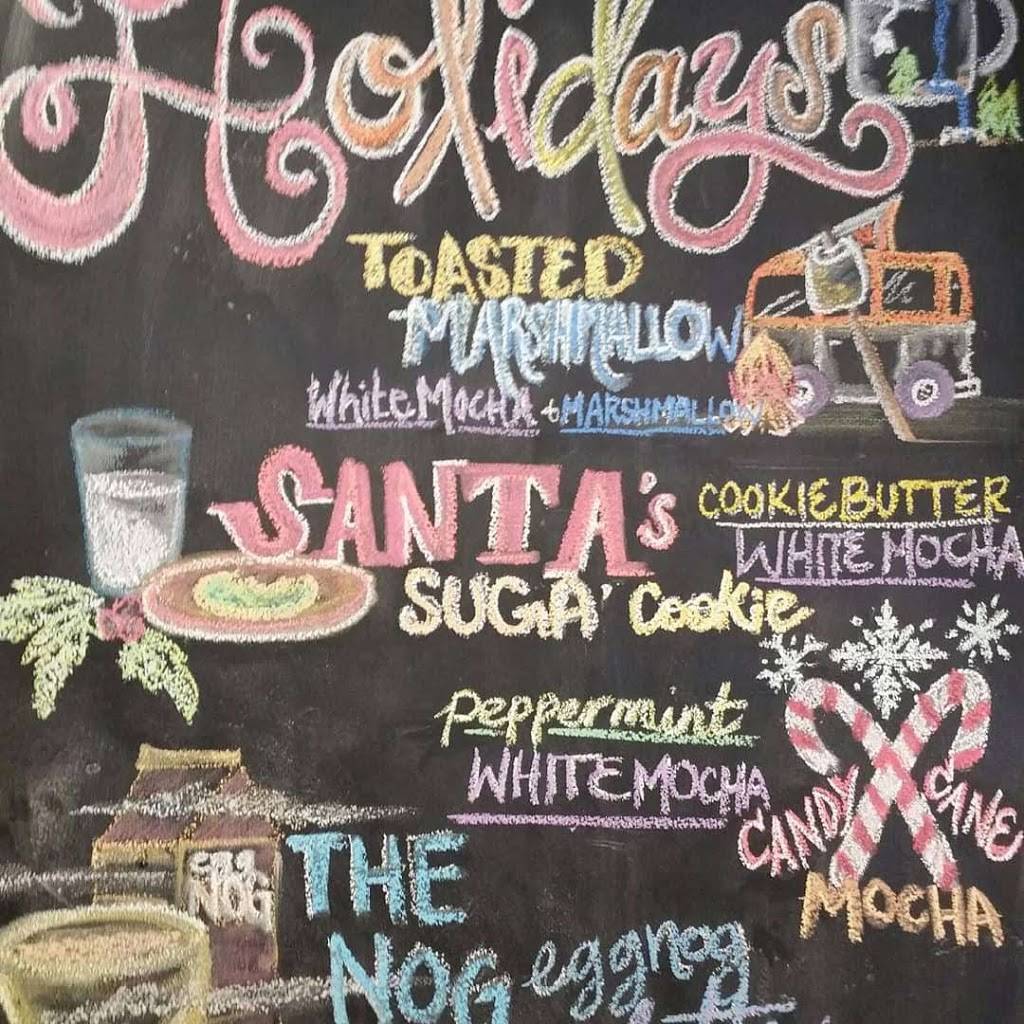 Holidays
TOASTED
MARSHMALLOW
White Mocha + MARSHMALLOW
SANTA's
SUGA' Cookie
COOKIE BUTTER
WHITE MOCHA
peppermint
WHITE MOCHA
CANDY CANE
MOCHA
EGG
NOG
THE
NOG
eggnog